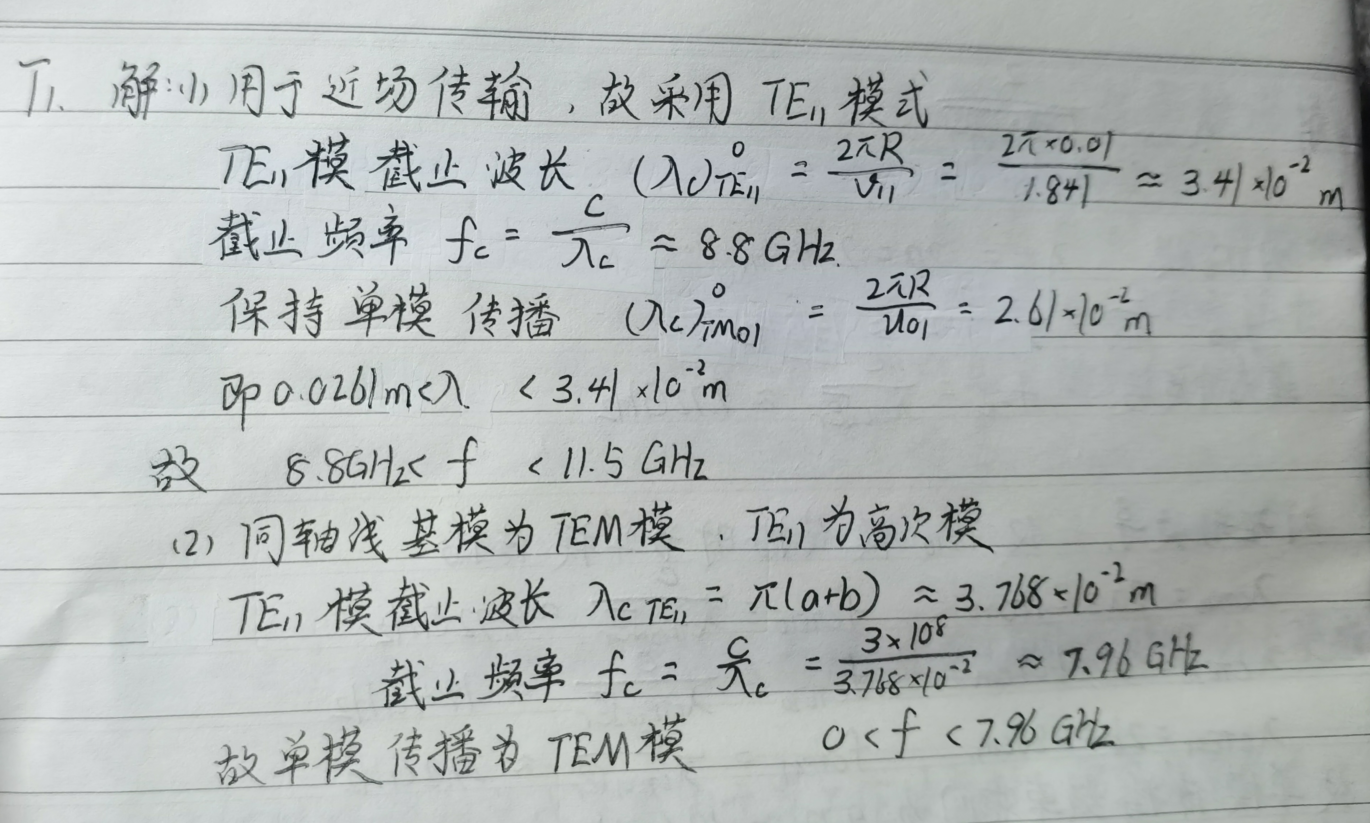 T1. 解:(1) 用于近场传输，故采用 TE₁₁ 模式
TE₁₁模 截止波长 (λc)⁰TE₁₁ = 2πR/υ₁₁ = 2π×0.01/1.841 ≈ 3.41×10⁻² m
截止频率 fc = c/λc ≈ 8.8 GHz.
保持单模传播 (λc)⁰TM₀₁ = 2πR/υ₀₁ = 2.61×10⁻² m
即 0.0261m<λ < 3.41×10⁻² m
故 8.8GHz< f < 11.5 GHz
(2) 同轴线基模为TEM模，TE₁₁为高次模
TE₁₁模截止波长 λc TE₁₁ = π(a+b) ≈ 3.768×10⁻² m
截止频率 fc = c/λc = 3×10⁸/3.768×10⁻² ≈ 7.96 GHz
故单模传播为TEM模 0<f<7.96 GHz